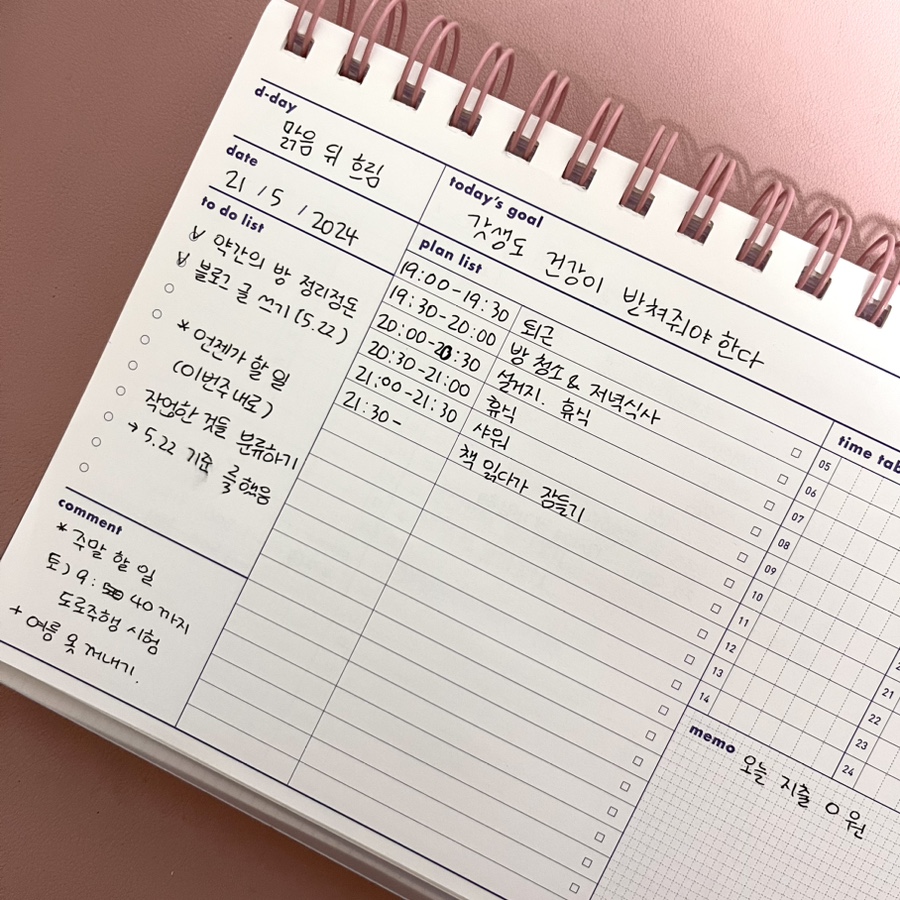 d-day
맑음 뒤 흐림
date
21 / 5 / 2024
to do list
약간의 방 정리정돈
블로그 글 쓰기 (5.22)
* 언젠가 할 일
(이번주 내로)
작업한 것들 분류하기
→ 5.22 기준 2/3 했음
comment
* 주말 할 일
토) 9: 40 까지
도로주행 시험
+ 여름 옷 꺼내기.
today's goal
갓생도 건강이 받쳐줘야 한다
plan list
19:00-19:30 퇴근
19:30-20:00 방 청소 & 저녁식사
20:00-20:30 설거지. 휴식
20:30-21:00 휴식
21:00-21:30 샤워
21:30- 책 읽다가 잠들기
time tab
05
06
07
08
09
10
11
12
13
14
21
22
23
24
memo
오늘 지출 0원